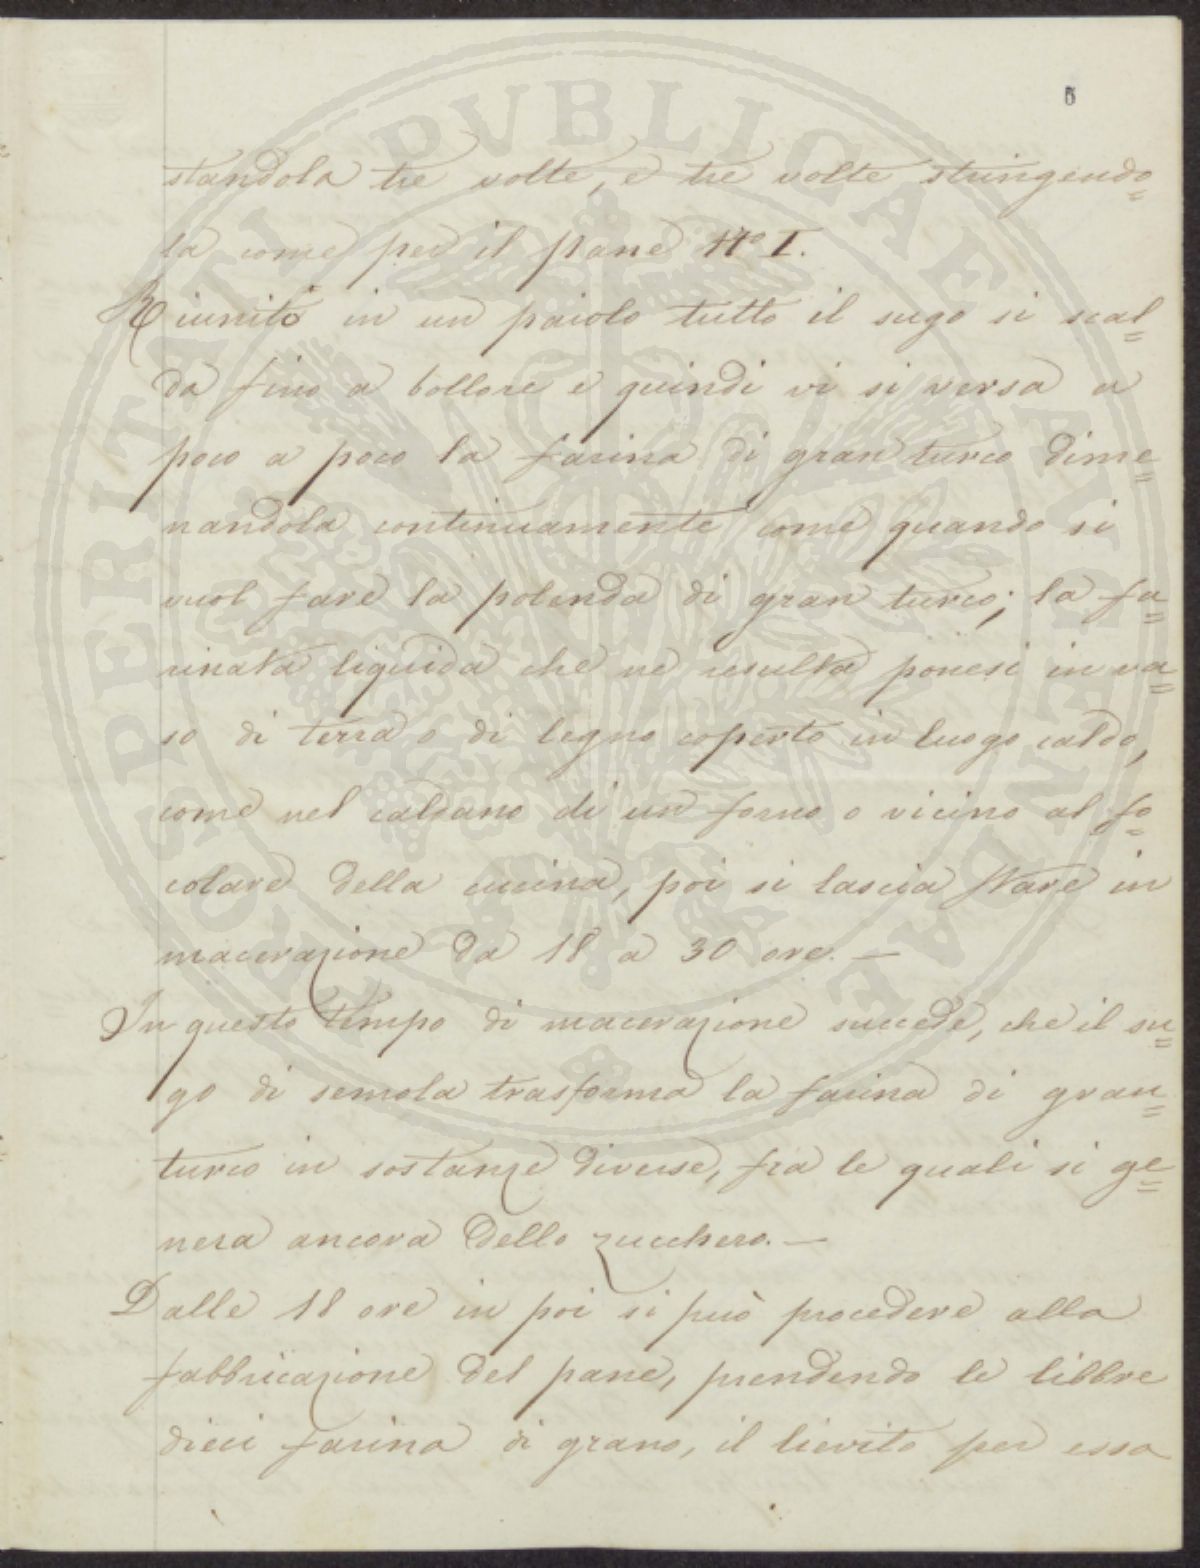 5
standola tre volte, e tre volte stringendo=
la come per il pane N.º I.
Riunito in un paiolo tutto il sugo si scal=
da fino a bollore e quindi vi si versa a
poco a poco la farina di gran turco dime=
nandola continuamente come quando si
vuol fare la polenda di gran turco; la fa=
rinata liquida che ne resulta ponesi in va=
so di terra o di legno coperto in luogo caldo,
come nel caldano di un forno o vicino al fo=
colare della cucina, poi si lascia stare in
macerazione da 18 a 30 ore. —
In questo tempo di macerazione succede, che il su=
go di semola trasforma la farina di gran=
turco in sostanze diverse, fra le quali si ge=
nera ancora dello zucchero. —
Dalle 18 ore in poi si può procedere alla
fabbricazione del pane, prendendo le libbre
dieci farina di grano, il lievito per essa
PROSPERITATI PVBLICAE AVGENDAE